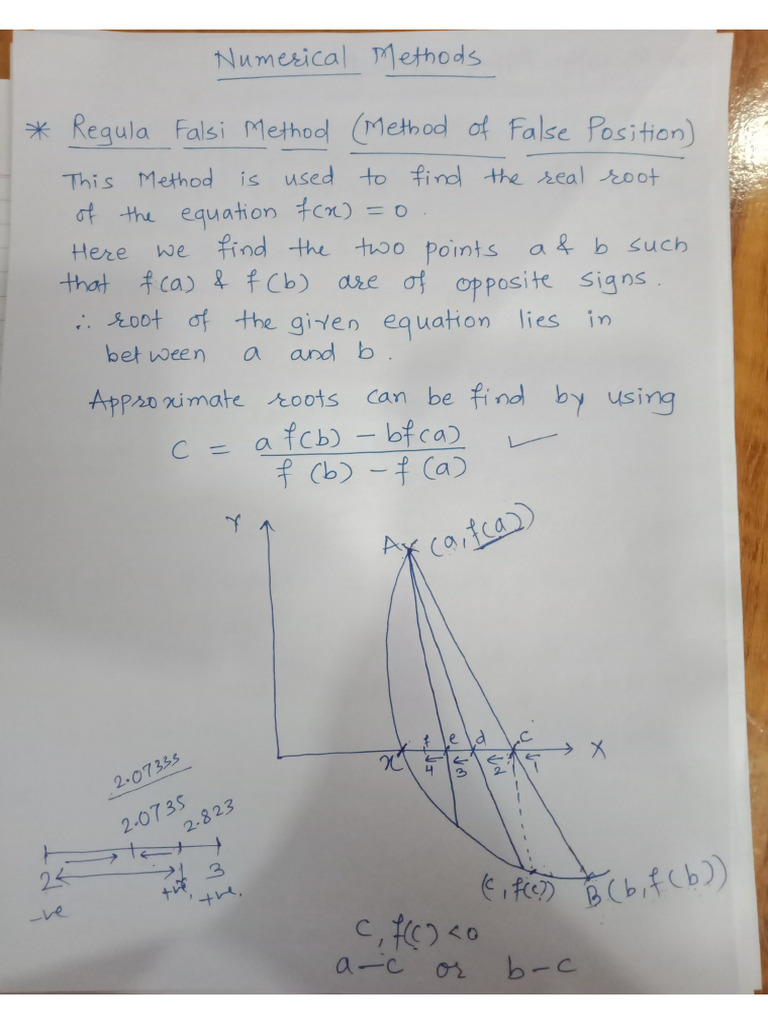 Numerical Methods
* Regula Falsi Method (Method of False Position)
This Method is used to find the real root
of the equation f(x) = 0.
Here we find the two points a & b such
that f(a) & f(b) are of opposite signs.
∴ root of the given equation lies in
between a and b.
Approximate roots can be find by using
c = a f(b) - bf(a) / f(b) - f(a) ✓
Y
A (a, f(a))
x f e d c X
4 3 2 1
(c, f(c)) B(b, f(b))
2.07333
2.0735 2.823
2 3
-ve +ve, +ve.
c, f(c) < 0
a-c or b-c